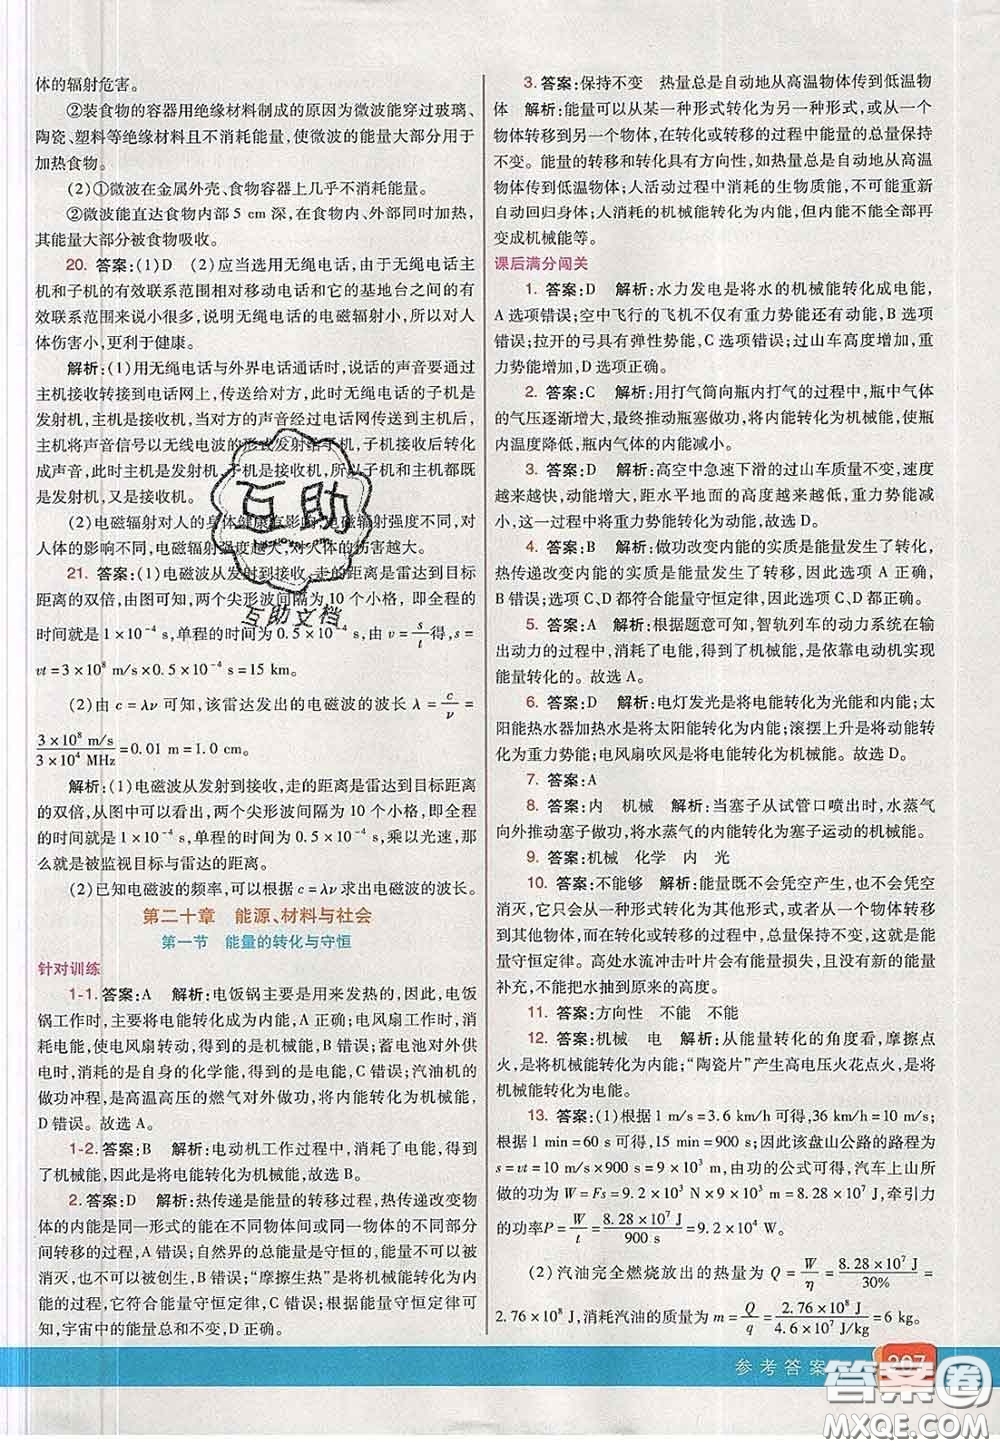 体的辐射危害。
②装食物的容器用绝缘材料制成的原因为微波能穿过玻璃、
陶瓷、塑料等绝缘材料且不消耗能量,使微波的能量大部分用于
加热食物。
(2)①微波在金属外壳、食物容器上几乎不消耗能量。
②微波能直达食物内部5 cm深,在内部、外部同时加热,
其能量大部分被食物吸收。
20. 答案:(1)D (2)应当选用无绳电话,由于无绳电话主
机和子机的有效联系范围相对移动电话和它的基地台之间的有
效联系范围小很多,使无绳电话的电磁辐射小,所以对人
体伤害小,更利于健康。
解析:(1)用无绳电话与外界电话通话时,说话的声音要通过
主机接收转接到电话网上,传送给对方,此时无绳电话的子机是
发射机,主机是接收机。当对方的声音经过电话网传送到主机后,
主机将声音信号以无线电波的形式发射给手机,子机接收后转化
成声音,此时主机是发射机,子机是接收机。所以子机和主机都既
是发射机,又是接收机。
(2)电磁辐射对人的身体健康有影响,电磁辐射强度不同,对
人体的影响不同,电磁辐射强度越大,对人体的伤害越大。
21. 答案:(1)电磁波从发射到接收,走的距离是雷达到目标
距离的双倍,由图可知,两个尖形波间隔为10个小格,即全程的
时间就是1×10⁻⁴ s,单程的时间为0.5×10⁻⁴ s,由v=s/t得,s=
vt=3×10⁸ m/s×0.5×10⁻⁴ s=15 km。
(2)由c=λν可知,该雷达发出的电磁波的波长λ=c/ν=
3×10⁸ m/s/3×10⁴ MHz=0.01 m=1.0 cm。
解析:(1)电磁波从发射到接收,走的距离是雷达到目标距离
的双倍,从图中可以看到,两个尖形波间隔为10个小格,即全程
的时间就是1×10⁻⁴ s,单程的时间为0.5×10⁻⁴ s,乘以光速,那
么就是被监视目标与雷达的距离。
(2)已知电磁波的频率,可以根据c=λν求出电磁波的波长。
第二十章 能源、材料与社会
第一节 能量的转化与守恒
针对训练
1-1. 答案:A 解析:电饭锅主要是用来发热的,因此,电饭
锅工作时,主要将电能转化成为内能,A正确;电风扇工作时,消
耗电能,使电风扇转动,得到的是机械能,B错误;蓄电池在使用
时,消耗的是自身的化学能,得到的是电能,C错误;汽油机的
做功冲程,是高温高压的燃气对外做功,将内能转化为机械能,
D错误。故选A。
1-2. 答案:B 解析:电动机工作过程中,消耗了电能,得到
了机械能,因此是将电能转化为机械能,故选B。
2. 答案:D 解析:热传递是能量的转移过程,热传递改变物
体的内能是同一形式的能在不同物体间或同一物体的不同部分
间转移的过程,A错误;自然界的总能量是守恒的,能量不可以被
消灭,也不可以被创生,B错误;“摩擦生热”是将机械能转化为内能
的过程,它符合能量守恒定律,C错误;由能量守恒定律可
知,宇宙中的能量总和不变,D正确。
3. 答案:保持不变 热量总是自动地从高温物体传到低温物
体 解析:能量可以从某一种形式转化为另一种形式,或从一个
物体转移到另一个物体,在转化或转移的过程中能量的总量保持
不变。能量的转移和转化具有方向性,如热量总是自动地从高温
物体传到低温物体;人活动过程中消耗的生物质能,不可能重新
自动回归身体;人消耗的机械能转化为内能,但内能不能全部再
变成机械能等。
课后满分闯关
1. 答案:D 解析:水力发电是将水的机械能转化成电能,
A选项错误;空中飞行的飞机不仅有重力势能还有动能,B选项
错误;拉开的弓具有弹性势能,C选项错误;过山车高度增加,重
力势能增加,D选项正确。
2. 答案:C 解析:用打气筒向瓶内打气的过程中,瓶中气体
的气压逐渐增大,最终推动瓶塞做功,将内能转化为机械能,使瓶
内温度降低,瓶内气体的内能减小。
3. 答案:D 解析:高空中急速下滑的过山车质量不变,速度
越来越快,动能增大,距水平地面的高度越来越低,重力势能减
小,这一过程中将重力势能转化为动能,故选D。
4. 答案:B 解析:做功改变内能的实质是能量发生了转化,
热传递改变内能的实质是能量发生了转移,因此选项A正确,
B错误;选项C、D都符合能量守恒定律,所以选项C、D都正确。
5. 答案:A 解析:根据题意可知,智轨列车的动力系统在输
出动力的过程中,消耗了电能,得到了机械能,是依靠电动机实现
能量转化的。故选A。
6. 答案:D 解析:电灯发光是将电能转化为光能和内能;太
阳能热水器加热水是将太阳能转化为内能;滚摆上升是将动能转
化为重力势能;电风扇吹风是将电能转化为机械能。故选D。
7. 答案:A
8. 答案:内 机械 解析:当塞子从试管口喷出时,水蒸气
向外推动塞子做功,将水蒸气的内能转化为塞子运动的机械能。
9. 答案:机械 化学 内 光
10. 答案:不能够 解析:能量既不会凭空产生,也不会凭空
消灭,它只会从一种形式转化为其他形式,或者从一个物体转移
到另一个物体,而在转化或转移的过程中,能量的总量不变,这就是
能量守恒定律。高处水流冲击叶片会有能量损失,且没有新的能量
补充,不能把水抽到原来的高度。
11. 答案:方向性 不能 不能
12. 答案:机械 电 解析:从能量转化的角度看,摩擦点
火,是将机械能转化为内能;“陶瓷片”产生高电压火花点火,是将
机械能转化为电能。
13. 答案:(1)根据1 m/s=3.6 km/h可得,36 km/h=10 m/s;
根据1 min=60 s可得,15 min=900 s;因此该盘山公路的路程为
s=vt=10 m/s×900 s=9 000 m,由功的公式可得,汽车上山所
做的功为W=Fs=9.2×10³ N×9×10³ m=8.28×10⁷ J,牵引力
的功率P=W/t=8.28×10⁷ J/900 s=9.2×10⁴ W。
(2)汽油完全燃烧放出的热量为Q=W/η=8.28×10⁷ J/30%=
2.76×10⁸ J,消耗汽油的质量为m=Q/q=2.76×10⁸ J/4.6×10⁷ J/kg=6 kg。
互助
互助文档
参考答案
207
答案圈
MXQE.COM